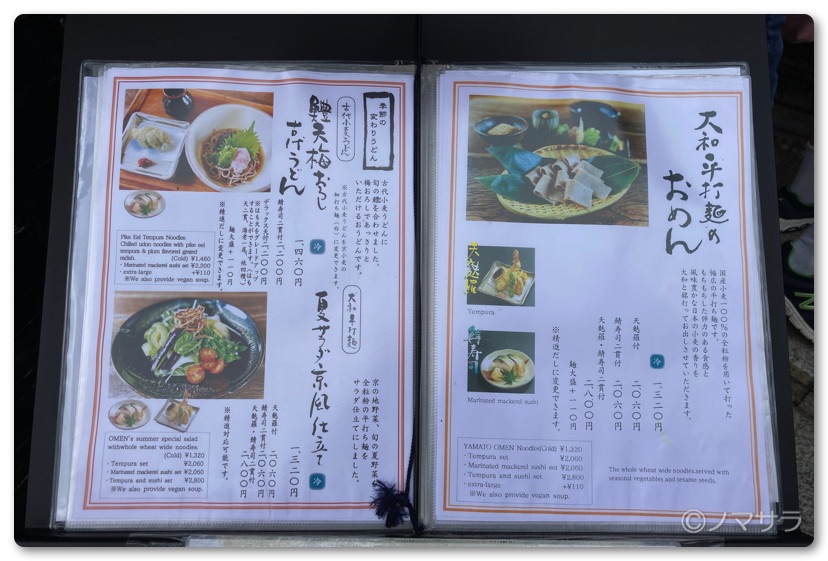 季節の
変わりうどん
古代小麦うどん
鱧天梅おろし
古代小麦うどんに
旬の鱧を合わせました。
梅おろしであっさりと
いただけるおうどんです。
冷 一、四六〇円
鯖寿司二貫付 二、二〇〇円
麺大盛 +一一〇円
※精進だしに変更できます。
Pike Eel Tempura Noodles
Chilled udon noodles with pike eel
tempura & plum flavored grated
radish. (Cold) ¥1,460
・Marinated mackerel sushi set ¥2,200
・extra-large +¥110
※We also provide vegan soup.
大和平打麺
夏サラダ京風仕立て
京の地野菜、旬の夏野菜と
全粒粉の平打ち麺を
サラダ仕立てにしました。
冷 一、三二〇円
天麩羅付 二、〇六〇円
鯖寿司二貫付 二、〇六〇円
天麩羅・鯖寿司二貫付 二、八〇〇円
※精進対応可能です。
OMEN's summer special salad
withwhole wheat wide noodles.
(Cold) ¥1,320
・Tempura set ¥2,060
・Marinated mackerel sushi set ¥2,060
・Tempura and sushi set ¥2,800
※We also provide vegan soup.
大和平打麺の
おめん
国産小麦一〇〇%の全粒粉を用いて打った
幅広の平打ち麺です。
もちもちした弾力のある食感と
風味豊かな日本の小麦の香りを
大和と銘打ってお出しさせていただきます。
冷 一、三二〇円
天麩羅付 二、〇六〇円
鯖寿司二貫付 二、〇六〇円
天麩羅・鯖寿司二貫付 二、八〇〇円
麺大盛 +一一〇円
※精進だしに変更できます。
天麩羅
Tempura
鯖寿司
Marinated mackerel sushi
YAMATO OMEN Noodles(Cold) ¥1,320
・Tempura set ¥2,060
・Marinated mackerel sushi set ¥2,060
・Tempura and sushi set ¥2,800
・extra-large +¥110
※We also provide vegan soup.
The whole wheat wide noodles,served with
seasonal vegetables and sesame seeds.
©ノマサラ